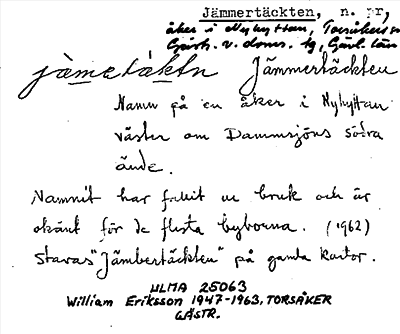 Jämmertäckten, n. pr,
åker i Nyhyttan, Torsåkers sn
Gästr. v. doms. tg, Gävl. län
jämetäktn Jämmertäckten
Namn på en åker i Nyhyttan
väster om Dammsjöns södra
ände.
Namnet har fallit ur bruk och är
okänt för de flesta byborna. (1962)
Stavas "Jämbertäckten" på gamla kartor.
ULMA 25063
William Eriksson 1947-1963, TORSÅKER
GÄSTR.